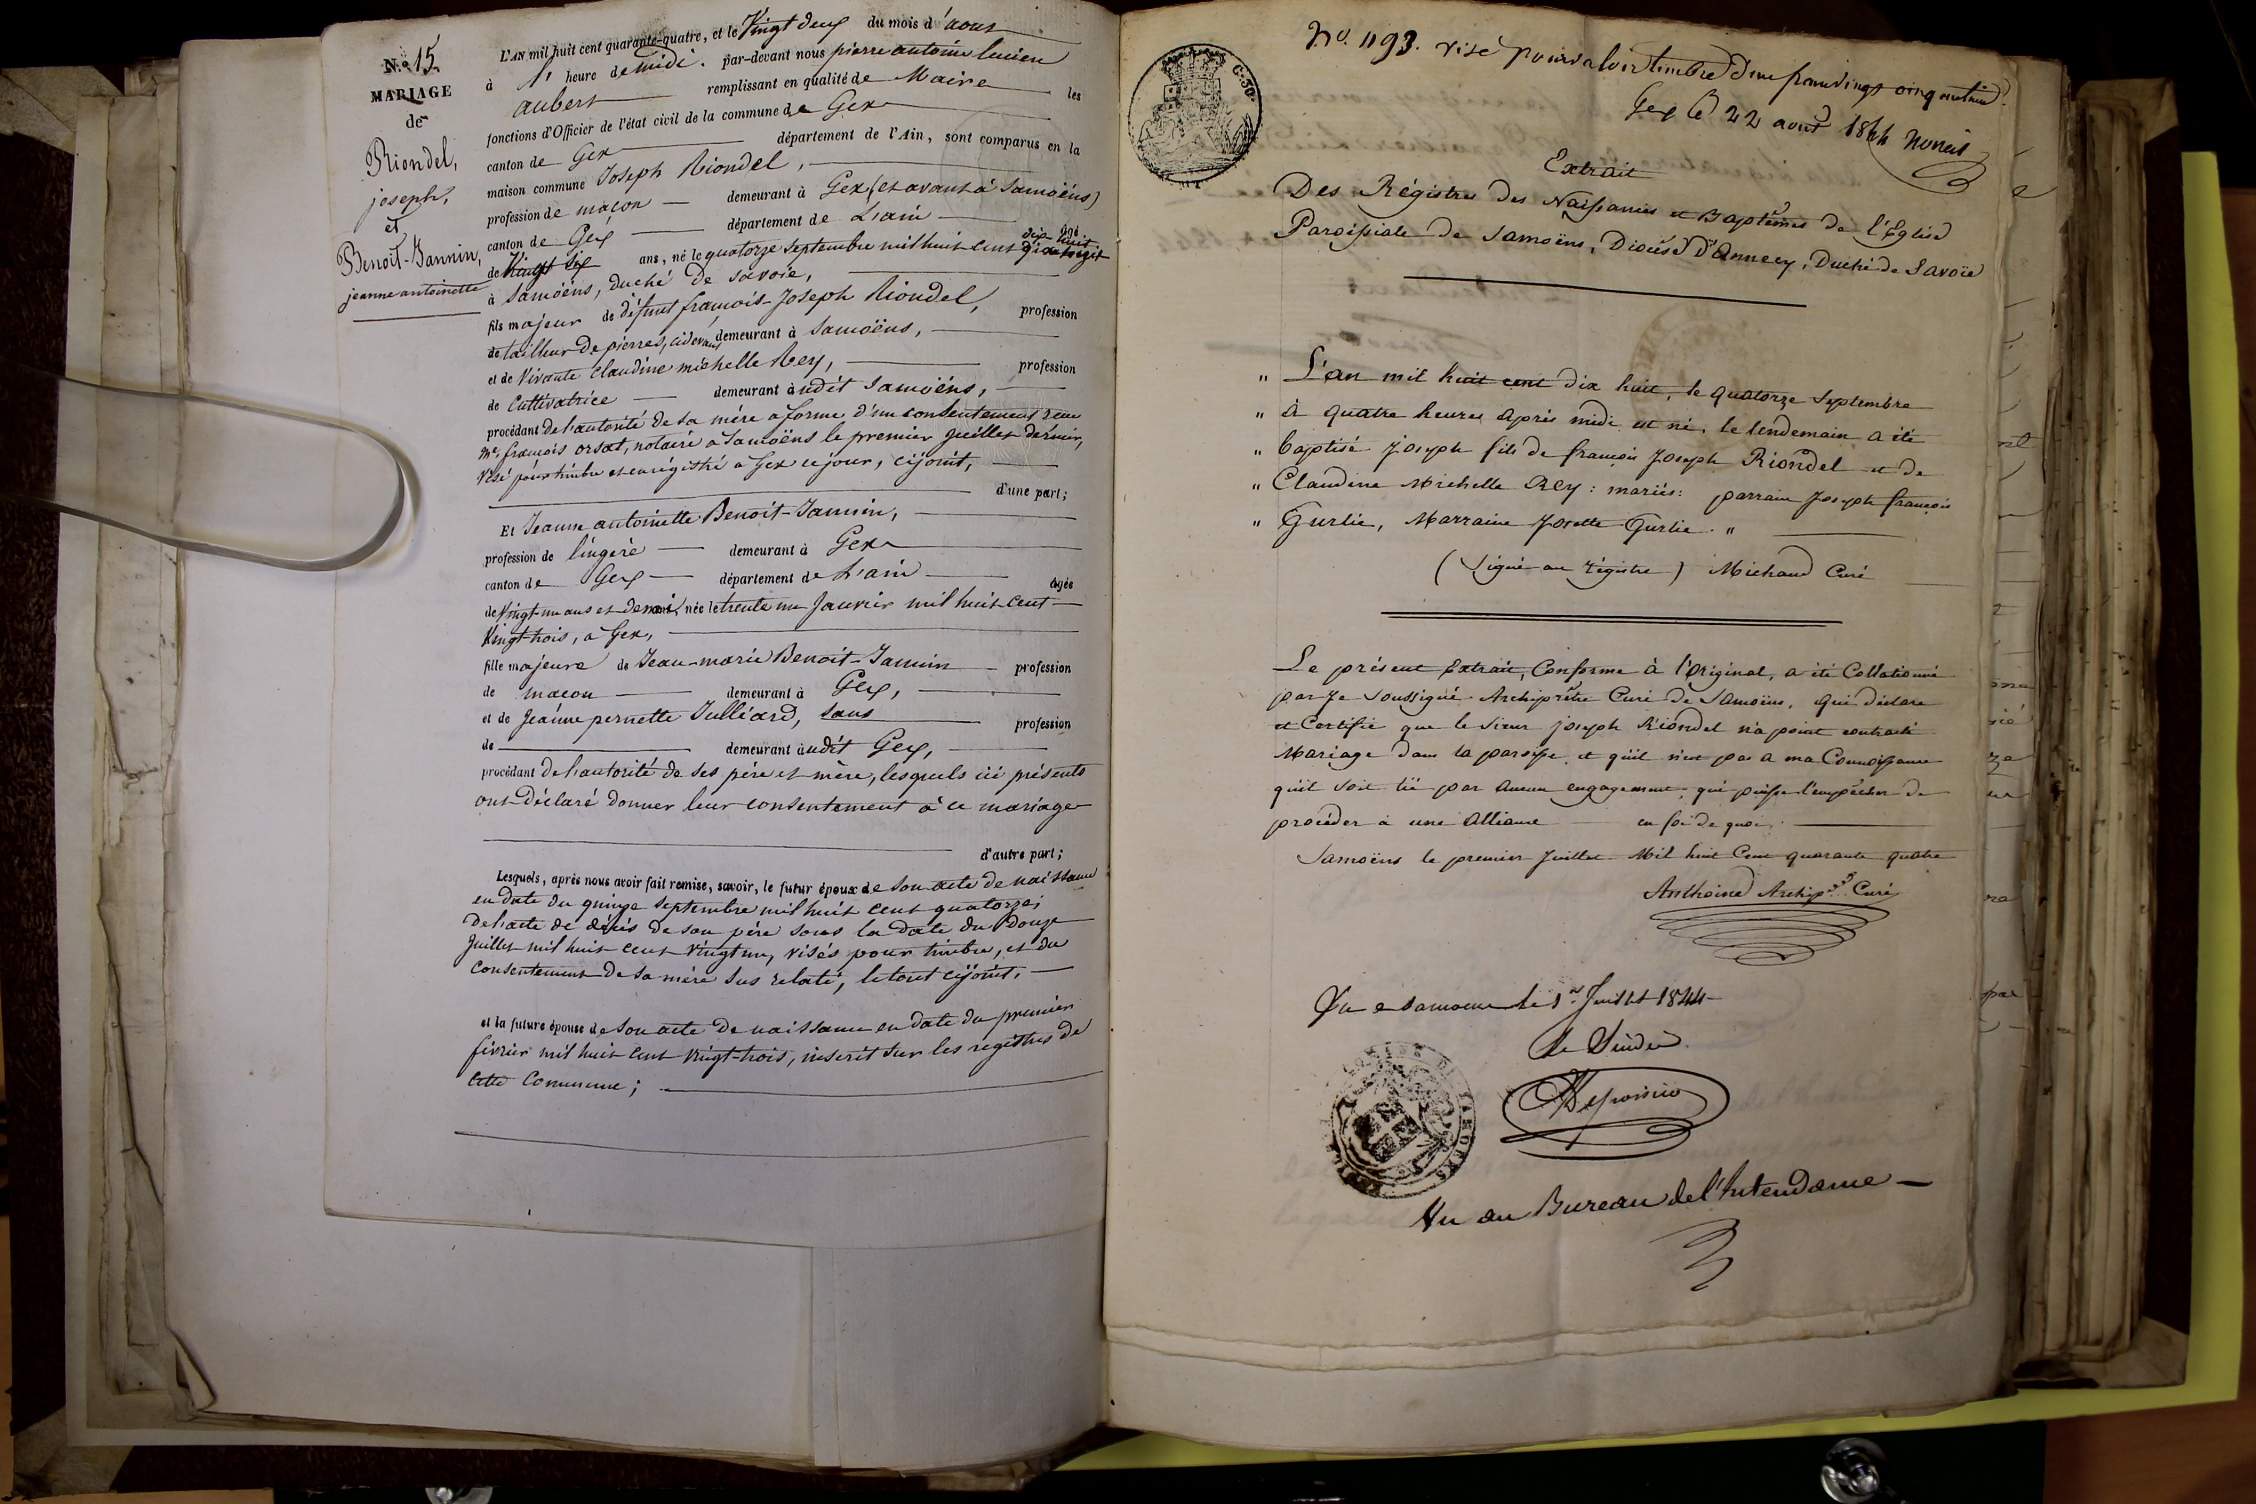 N.º 15
MARIAGE
de
Riondel,
joseph,
et
Benoit-Jannin,
jeanne antoinette
L'AN mil huit cent quarante-quatre, et le Vingt deux du mois d'aout
à heure de midi. par-devant nous pierre antoine lucien
aubert remplissant en qualité de Maire les
fonctions d'Officier de l'état civil de la commune de Gex
canton de Gex département de l'Ain, sont comparus en la
maison commune Joseph Riondel,
profession de maçon demeurant à Gex (et avant à Samoëns)
canton de Gex département de L'ain âgé
de Vingt six ans, né le quatorze septembre mil huit cent dix huit
à Samoëns, duché de Savoie,
fils majeur de défunt françois-Joseph Riondel, profession
de tailleur de pierres, cidevant demeurant à Samoëns,
et de Vivante Claudine michelle Rey, profession
de Cultivatrice demeurant à udit Samoëns,
procédant de l'autorité de sa mère a forme d'un consentement reçu
Me. françois orsat, notaire a Samoëns le premier juillet dernier,
Visé pour timbre et enregistré a Gex ce jour, cijoint,
d'une part;
Et Jeanne antoinette Benoit-Jannin,
profession de lingère demeurant à Gex
canton de Gex département de L'ain âgée
de Vingt-un ans et demi, née le trente un Janvier mil huit-cent
Vingt-trois, a Gex,
fille majeure de Jean-marie Benoit-Jannin profession
de macon demeurant à Gex,
et de Jeanne pernette Julliard, sans profession
de demeurant à udit Gex,
procédant de l'autorité de ses père et mère, lesquels ici présents
ont déclaré donner leur consentement à ce mariage
d'autre part;
Lesquels, après nous avoir fait remise, savoir, le futur époux de son acte de naissance
en date du quinze septembre mil huit cent quatorze,
de l'acte de décès de son père sous la date du Douze
Juillet mil huit cent Vingt un, visés pour timbre, et du
consentement de sa mère sus relaté, le tout cijoint,
et la future épouse de son acte de naissance en date du premier
février mil huit cent Vingt-trois, inscrit sur les registres de
cette commune;
C. 30.
No. 1193. Visé pour valoir timbre
Gex le 22 aout 1844
Extrait
Des Régistres des Naissances et Baptêmes de l'Eglise
Paroissiale de Samoëns, Diocèse D'Annecy, Duché de Savoie
" L'an mil huit cent dix huit, le quatorze Septembre
" à quatre heures après midi est né, le lendemain a été
" baptisé Joseph fils de françois Joseph Riondel et de
" Claudine Michelle Rey: mariés: parrain Joseph françois
" Gurlie, Marraine Josette Gurlie. "
(Signé au régistre) Michaud Curé
Le présent Extrait, Conforme à l'original, a été Collationné
par Je Soussigné Archiprêtre Curé de Samoëns, qui déclare
et Certifie que le Sieur joseph Riondel n'a point contracté
Mariage dans la paroisse et qu'il n'est pas a ma Connoissance
qu'il soit lié par aucun engagement, qui puisse l'empêcher de
procéder à une Alliance en foi de quoi,
Samoëns le premier Juillet Mil huit Cent quarante quatre
Anthoine Archip.re Curé
Vu a Samoens le 1er Juillet 1844
Le Sindic
Vu au Bureau de l'Intendance